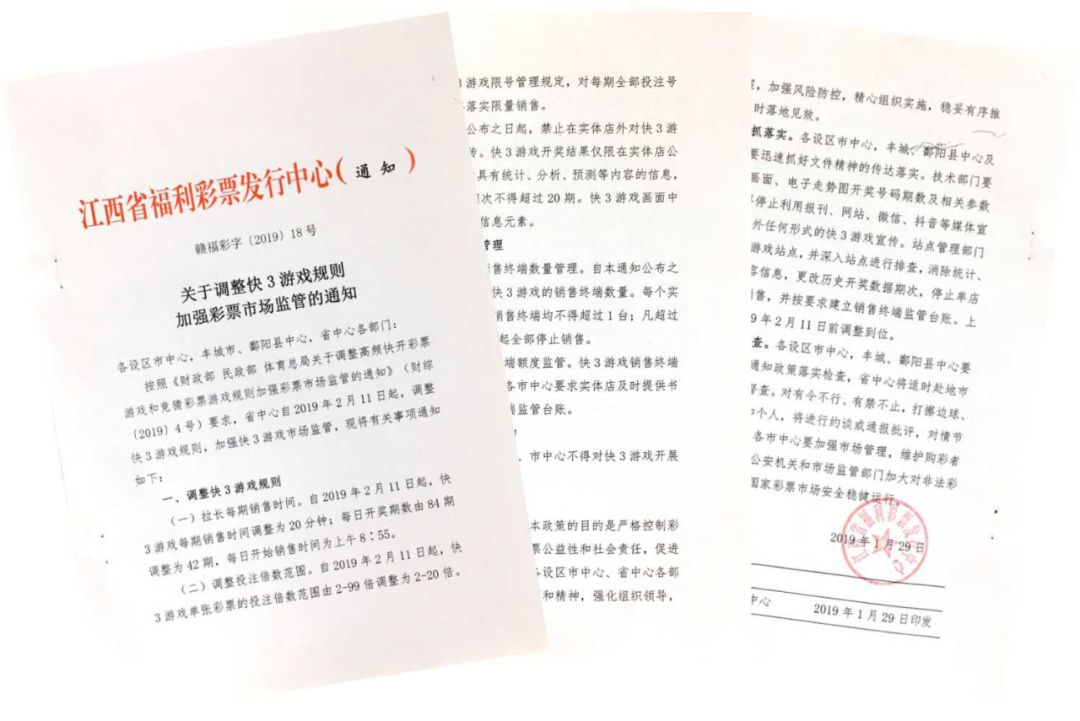 江西省福利彩票发行中心(通知)
赣福彩字〔2019〕18号
关于调整快3游戏规则
加强彩票市场监管的通知
各设区市中心，丰城市、鄱阳县中心，省中心各部门：
按照《财政部 民政部 体育总局关于调整高频快开彩票
游戏和竞猜彩票游戏规则加强彩票市场监管的通知》（财综
〔2019〕4号）要求，省中心自2019年2月11日起，调整
快3游戏规则，加强快3游戏市场监管，现将有关事项通知
如下：
一、调整快3游戏规则
（一）拉长每期销售时间。自2019年2月11日起，快
3游戏每期销售时间调整为20分钟；每日开奖期数由84期
调整为42期，每日开始销售时间为上午8：55。
（二）调整投注倍数范围。自2019年2月11日起，快
3游戏单张彩票的投注倍数范围由2-99倍调整为2-20倍。
3游戏限号管理规定，对每期全部投注号
落实限量销售。
公布之日起，禁止在实体店外对快3游
传。快3游戏开奖结果仅限在实体店公
具有统计、分析、预测等内容的信息，
次不得超过20期。快3游戏画面中
信息元素。
管理
售终端数量管理。自本通知公布之
快3游戏的销售终端数量。每个实
销售终端均不得超过1台；凡超过
起全部停止销售。
端额度监管。快3游戏销售终端
各市中心要求实体店及时提供书
端监管台账。
、市中心不得对快3游戏开展
本政策的目的是严格控制彩
票公益性和社会责任，促进
各设区市中心、省中心各部
和精神，强化组织领导，
，加强风险防控，精心组织实施，稳妥有序推
时落地见效。
抓落实。各设区市中心，丰城、鄱阳县中心及
要迅速抓好文件精神的传达落实。技术部门要
画面、电子走势图开奖号码期数及相关参数
停止利用报刊、网站、微信、抖音等媒体宣
外任何形式的快3游戏宣传。站点管理部门
游戏站点，并深入站点进行排查，消除统计、
容信息，更改历史开奖数据期次，停止单店
售，并按要求建立销售终端监管台账。上
9年2月11日前调整到位。
查。各设区市中心，丰城、鄱阳县中心要
通知政策落实检查，省中心将适时赴地市
督查。对有令不行、有禁不止，打擦边球、
个人，将进行约谈或通报批评，对情节
各市中心要加强市场管理，维护购彩者
公安机关和市场监管部门加大对非法彩
国家彩票市场安全稳健运行。
江西省福利彩票发行中心
2019年1月29日
中心 2019年1月29日印发